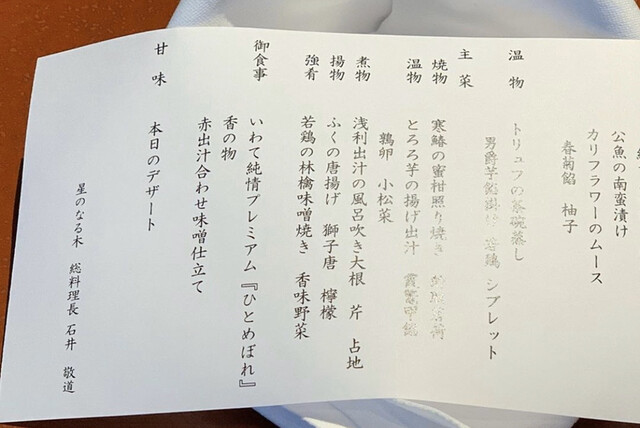 公魚の南蛮漬け
カリフラワーのムース
春菊餡 柚子
温物
トリュフの茶碗蒸し
男爵芋餡掛け 若鶏 シブレット
主菜
焼物 寒鰆の蜜柑照り焼き
温物 とろろ芋の揚げ出汁 霞鼈甲餡
鶉卵 小松菜
煮物 浅利出汁の風呂吹き大根 芹 占地
揚物 ふくの唐揚げ 獅子唐 檸檬
強肴 若鶏の林檎味噌焼き 香味野菜
御食事 いわて純情プレミアム『ひとめぼれ』
香の物
赤出汁合わせ味噌仕立て
甘味 本日のデザート
星のなる木 総料理長 石井 敬道